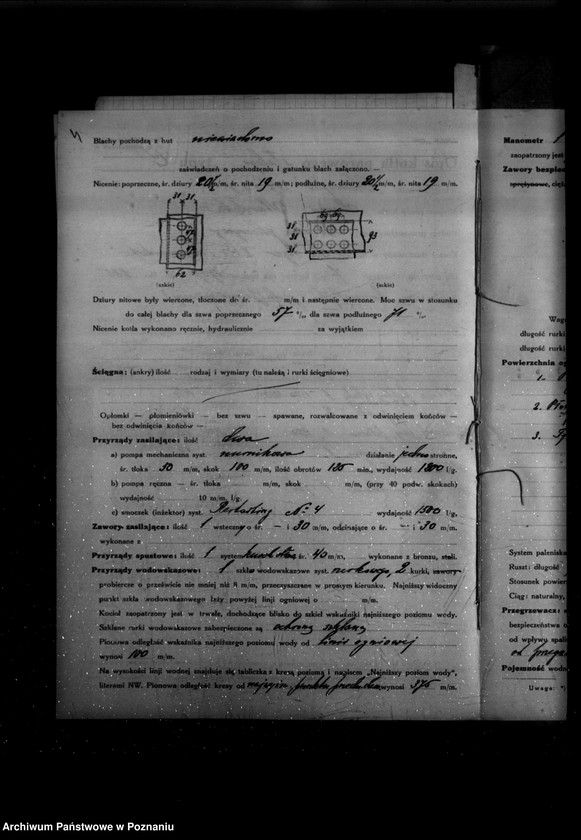 4
Blachy pochodzą z hut
zaświadczeń o pochodzeniu i gatunku blach załączono. —
Nicenie: poprzeczne, śr. dziury 20½ m/m, śr. nita 19 m/m; podłużne, śr. dziury 20½ m/m, śr. nita 19 m/m.
31 31
62
31
31
31
93
(szkic) (szkic)
Dziury nitowe były wiercone, tłoczone do śr. m/m i następnie wiercone. Moc szwu w stosunku
do całej blachy dla szwu poprzecznego 57 % dla szwu podłużnego 71 %.
Nicenie kotła wykonano ręcznie, hydraulicznie za wyjątkiem
Ścięgna: (ankry) ilość rodzaj i wymiary (tu należą i rurki ścięgniowe)
Opłomki — płomieniówki — bez szwu — spawane, rozwalcowane z odwinięciem końców —
bez odwinięcia końców —
Przyrządy zasilające: ilość dwa
a) pompa mechaniczna syst. nurnikowa działanie jednostronne,
śr. tłoka 50 m/m, skok 100 m/m, ilość obrotów 135 min., wydajność 1800 l/g.
b) pompa ręczna — śr. tłoka m/m, skok m/m, (przy 40 podw. skokach)
wydajność 10 m/m, l/g.
c) smoczek (inżektor) syst. Restarting № 4 wydajność 1500 l/g.
Zawory zasilające: ilość 1 wsteczny o śr. — i 30 m/m, odcinające o śr. — i 30 m/m.
wykonane z
Przyrządy spustowe: ilość 1 system śr. 40 m/m, wykonane z bronzu, stali.
Przyrządy wodowskazowe: 1 szkło wodowskazowe syst. 2 kurki, zawory
probiercze o prześwicie nie mniej niż 8 m/m, przeczyszczane w prostym kierunku. Najniższy widoczny
punkt szkła wodowskazowego leży powyżej linji ogniowej o m/m.
Kocioł zaopatrzony jest w trwałe, dochodzące blisko do szkieł wskaźniki najniższego poziomu wody.
Szklane rurki wodowskazowe zabezpieczone są ochroną szklaną
Pionowa odległość wskaźnika najniższego poziomu wody od linii ogniowej
wynosi 100 m/m.
Na wysokości linji wodnej znajduje się tabliczka z kresą poziomą i napisem „Najniższy poziom wody",
literami NW. Pionowa odległość kresy od wynosi 375 m/m.
Manometr 1
zaopatrzony jest
Zawory bezpiec
sprężynowe, cięż
Wag
długość rurki
długość rurki
Powierzchnia o
1.
2.
3.
System palenisk
Ruszt: długość
Stosunek powier
Ciąg: naturalny,
Przegrzewacz:
bezpieczeństwa
od wpływu spali
Pojemność wodn
Uwaga:
Archiwum Państwowe w Poznaniu